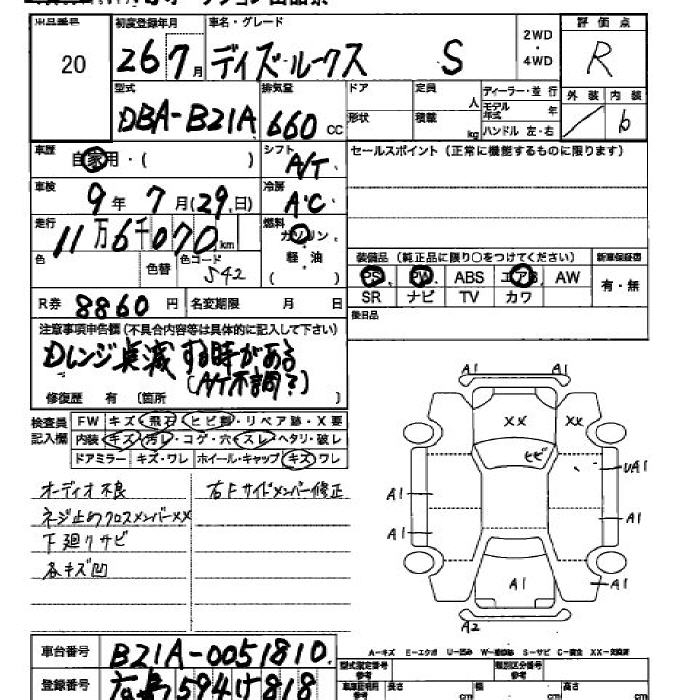 出品番号 初度登録年月 車名・グレード 2WD・4WD 評価点
20 26 7月 デイズルークス S R
型式 排気量 ドア 定員 人 ディーラー・並行 外装 内装
DBA-B21A 660 cc 形状 積載 kg モデル年式 年 ハンドル 左・右 ／ b
車歴 自家用・( ) シフト A/T セールスポイント（正常に機能するものに限ります）
車検 9年 7月(29日) 冷房 A・C
走行 11万6千070km 燃料 ガソリン
色 色替 色コード S42 軽・油 ( )
装備品（純正品に限り○をつけてください） 新車保証書
PS PW ABS エアB AW 有・無
SR ナビ TV カワ
R券 8860円 名変期限 月 日 後日品
注意事項申告欄（不具合内容等は具体的に記入して下さい）
Dレンジ点滅する時がある
(A/T不調？)
修復歴 有 〔箇所 〕
検査員記入欄 FW キズ・飛石・ヒビ割・リペア跡・X要
内装 キズ・汚レ・コゲ・穴・スレ・ヘタリ・破レ
ドアミラー キズ・ワレ ホイール・キャップ キズ・ワレ
オーディオ不良 右Fサイドメンバー修正
ネジ止めクロスメンバーXX
下廻りサビ
各キズ凹
A1 A1
XX XX
ヒビ
UA1
A1
A1 A1
A1 A1
A2
A-キズ E-エクボ U-凹み S-サビ C-腐食 XX-交換済
車台番号 B21A-0051810 型式指定番号 参考 類別区分番号 参考
登録番号 長さ cm 幅 cm 高さ cm